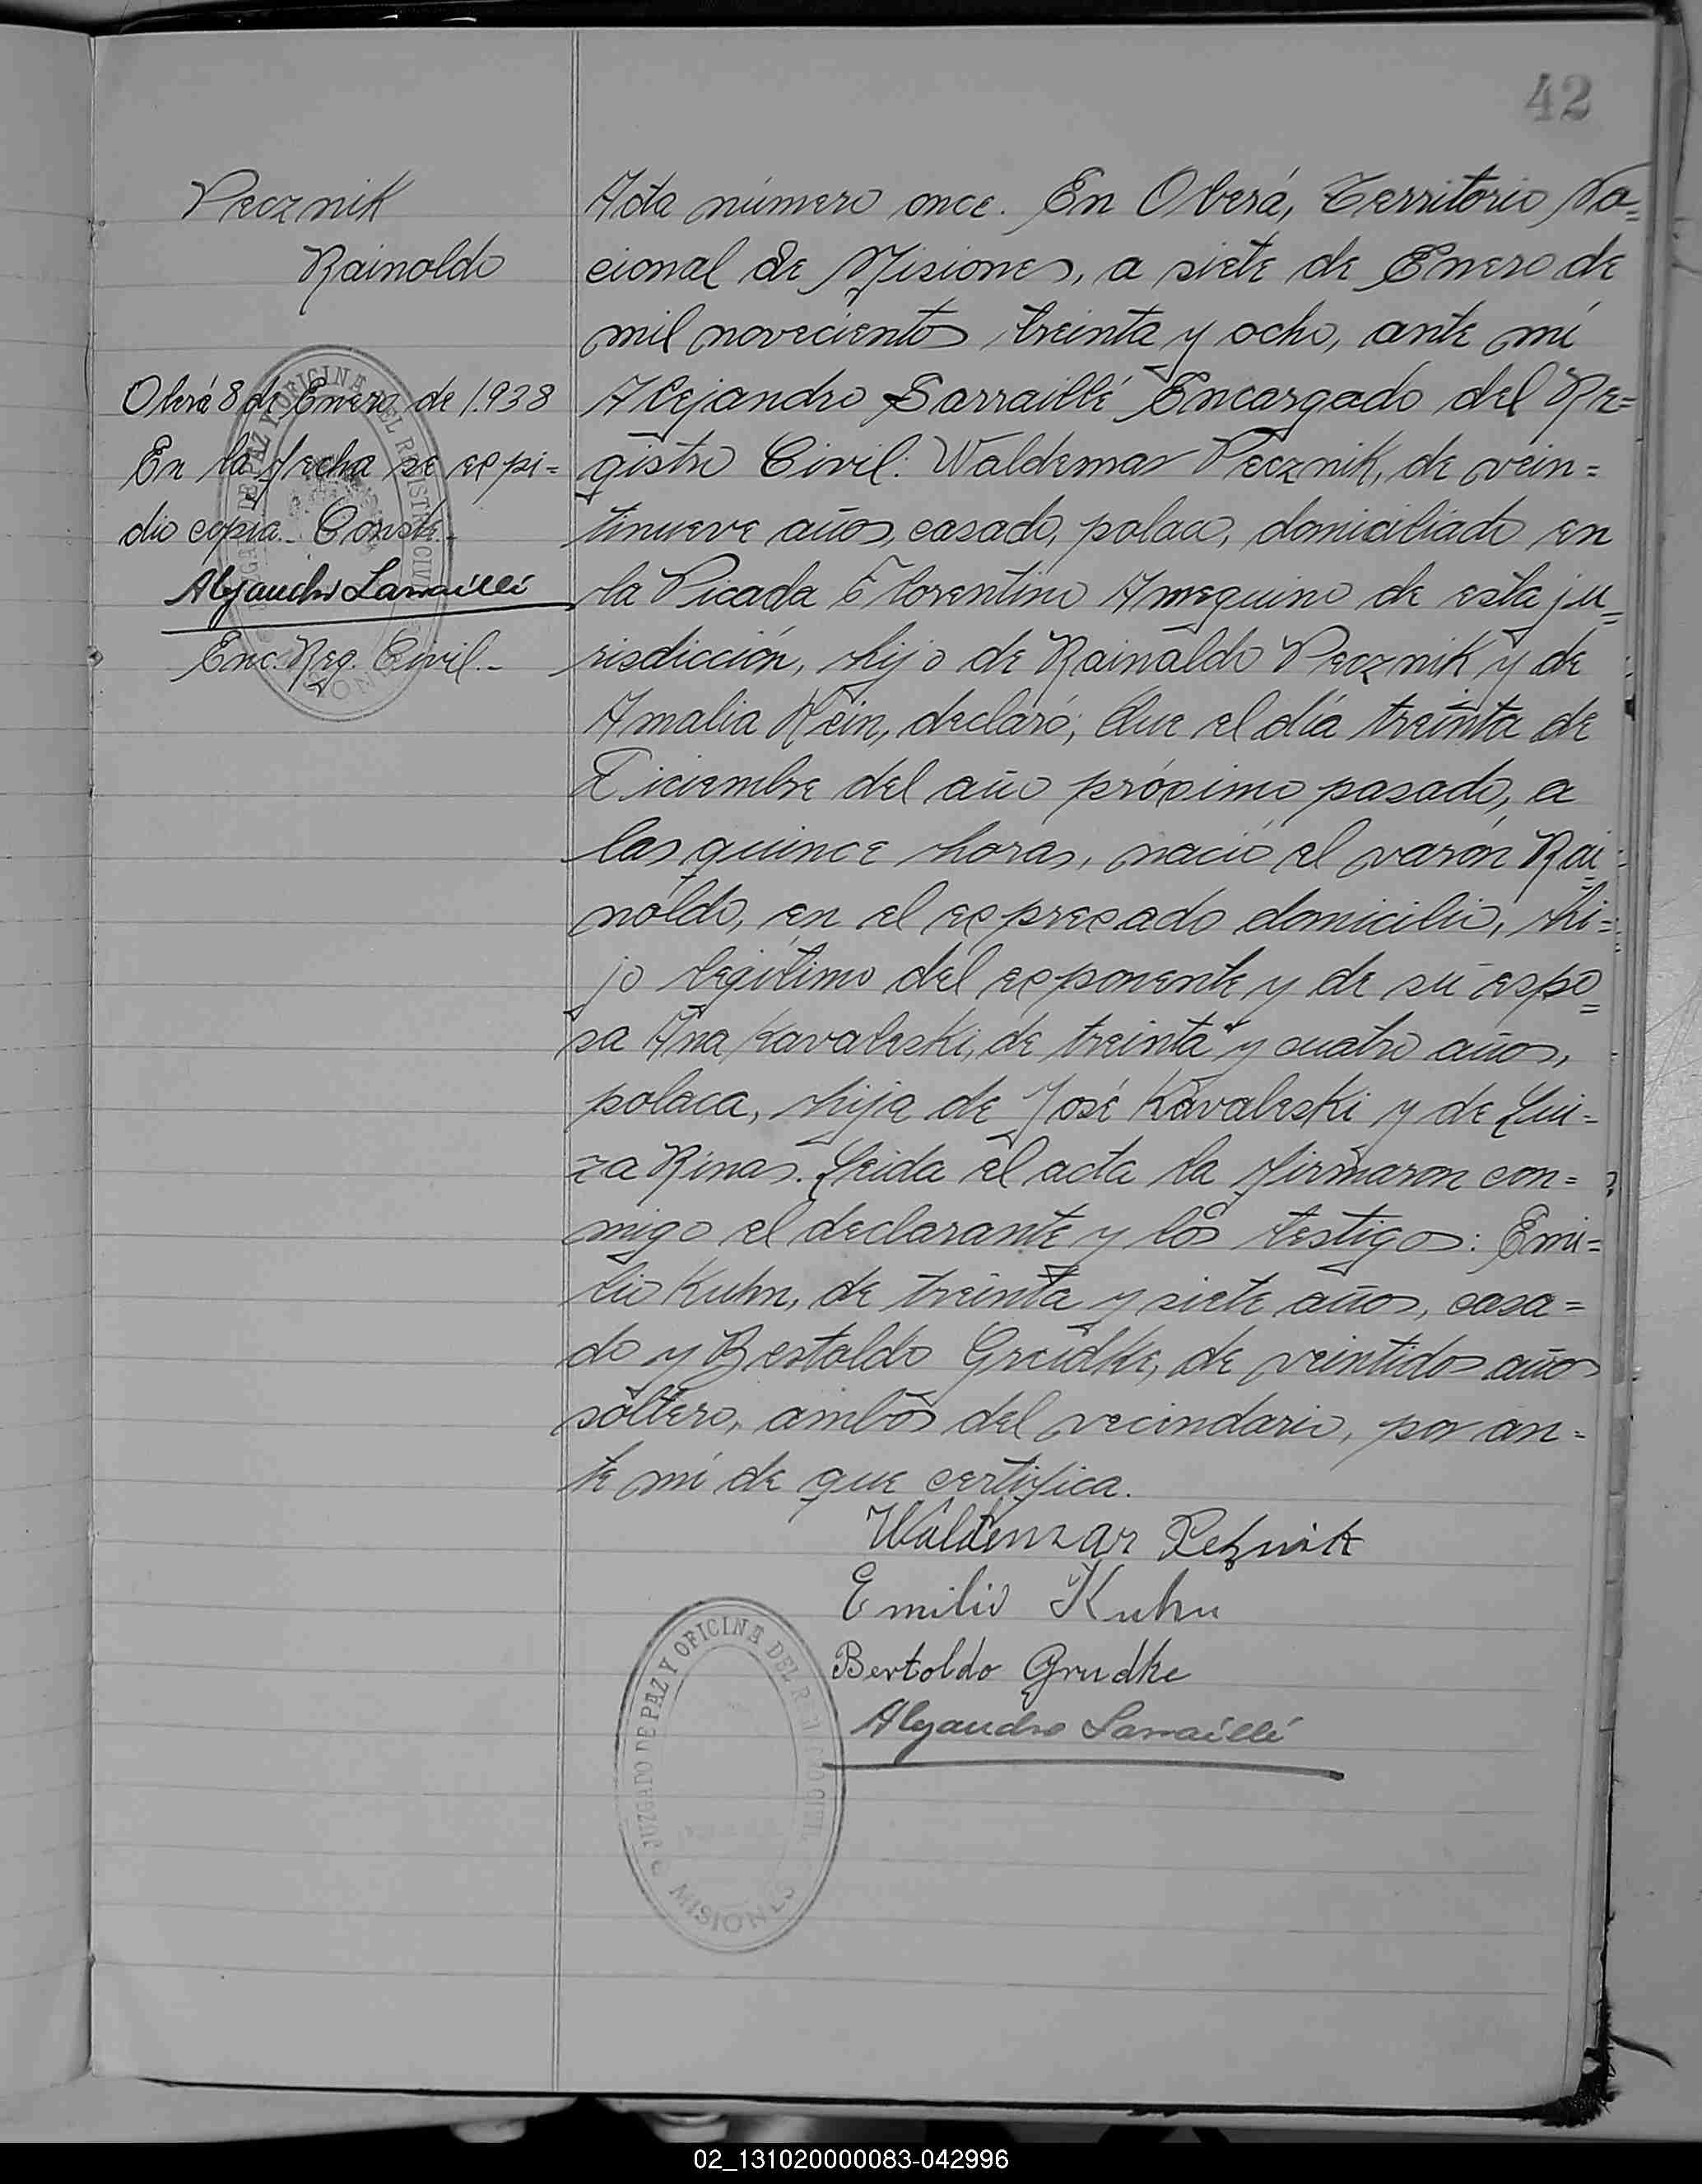 42
Pecznik
Rainoldo
Oberá 8 de Enero de 1.938
En la fecha se expi=
dio copia.- Conste.-
Alejandro Sarraillé
Enc. Reg. Civil.-
JUZGADO DE PAZ Y OFICINA DEL REGISTRO CIVIL
MISIONES
Acta número once. En Oberá, Territorio Na=
cional de Misiones, a siete de Enero de
mil novecientos treinta y ocho, ante mí
Alejandro Sarraillé Encargado del Re=
gistro Civil: Waldemar Pecznik, de vein=
tinueve años, casado, polaco, domiciliado en
la Picada Florentino Ameguino de esta ju=
risdicción, hijo de Rainaldo Pecznik y de
Amalia Klein, declaró; Que el día treinta de
Diciembre del año próximo pasado, a
las quince horas, nació el varón Rai=
noldo, en el expresado domicilio, hi=
jo legítimo del exponente y de su espo=
sa Ana Kavaleski, de treinta y cuatro años,
polaca, hija de José Kavaleski y de Lui=
za Rinas. Leida el acta la firmaron con=
migo el declarante y los testigos: Emi=
lio Kuhn, de treinta y siete años, casa=
do y Bertoldo Grudke, de veintidos años
soltero, ambos del vecindario, por an=
te mí de que certifica.
Waldemar Peznik
Emilio Kuhn
Bertoldo Grudke
Alejandro Sarraillé
JUZGADO DE PAZ Y OFICINA DEL REGISTRO CIVIL
MISIONES
02_131020000083-042996